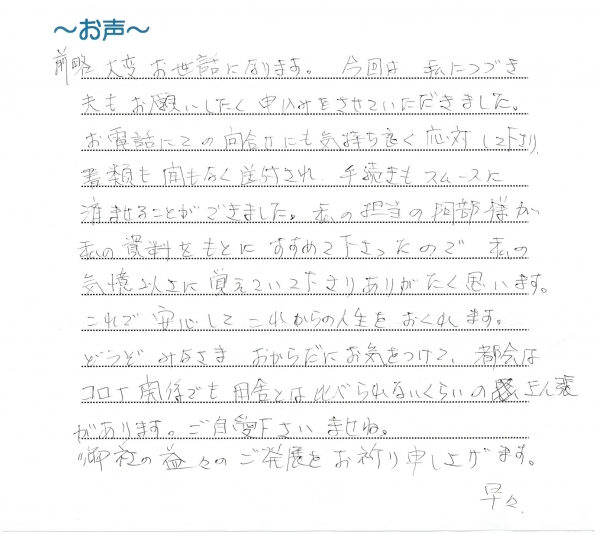 ～お声～
前略 大変お世話になります。 今回は 私につづき
夫もお願いしたく申込みをさせていただきました。
お電話にての問合せにも気持ち良く応対して下さり、
書類も間もなく送付され、手続きもスムースに
済ませることができました。私の担当の阿部様が
私の資料をもとにすすめて下さったので 私の
気憶以上に覚えていて下さりありがたく思います。
これで安心してこれからの人生をおくれます。
どうぞ みなさま おからだにお気をつけて、都会は
コロナ関係でも田舎とは比べられないくらいの
があります。ご自愛下さいませね。
御社の益々のご発展をお祈り申し上げます。
早々